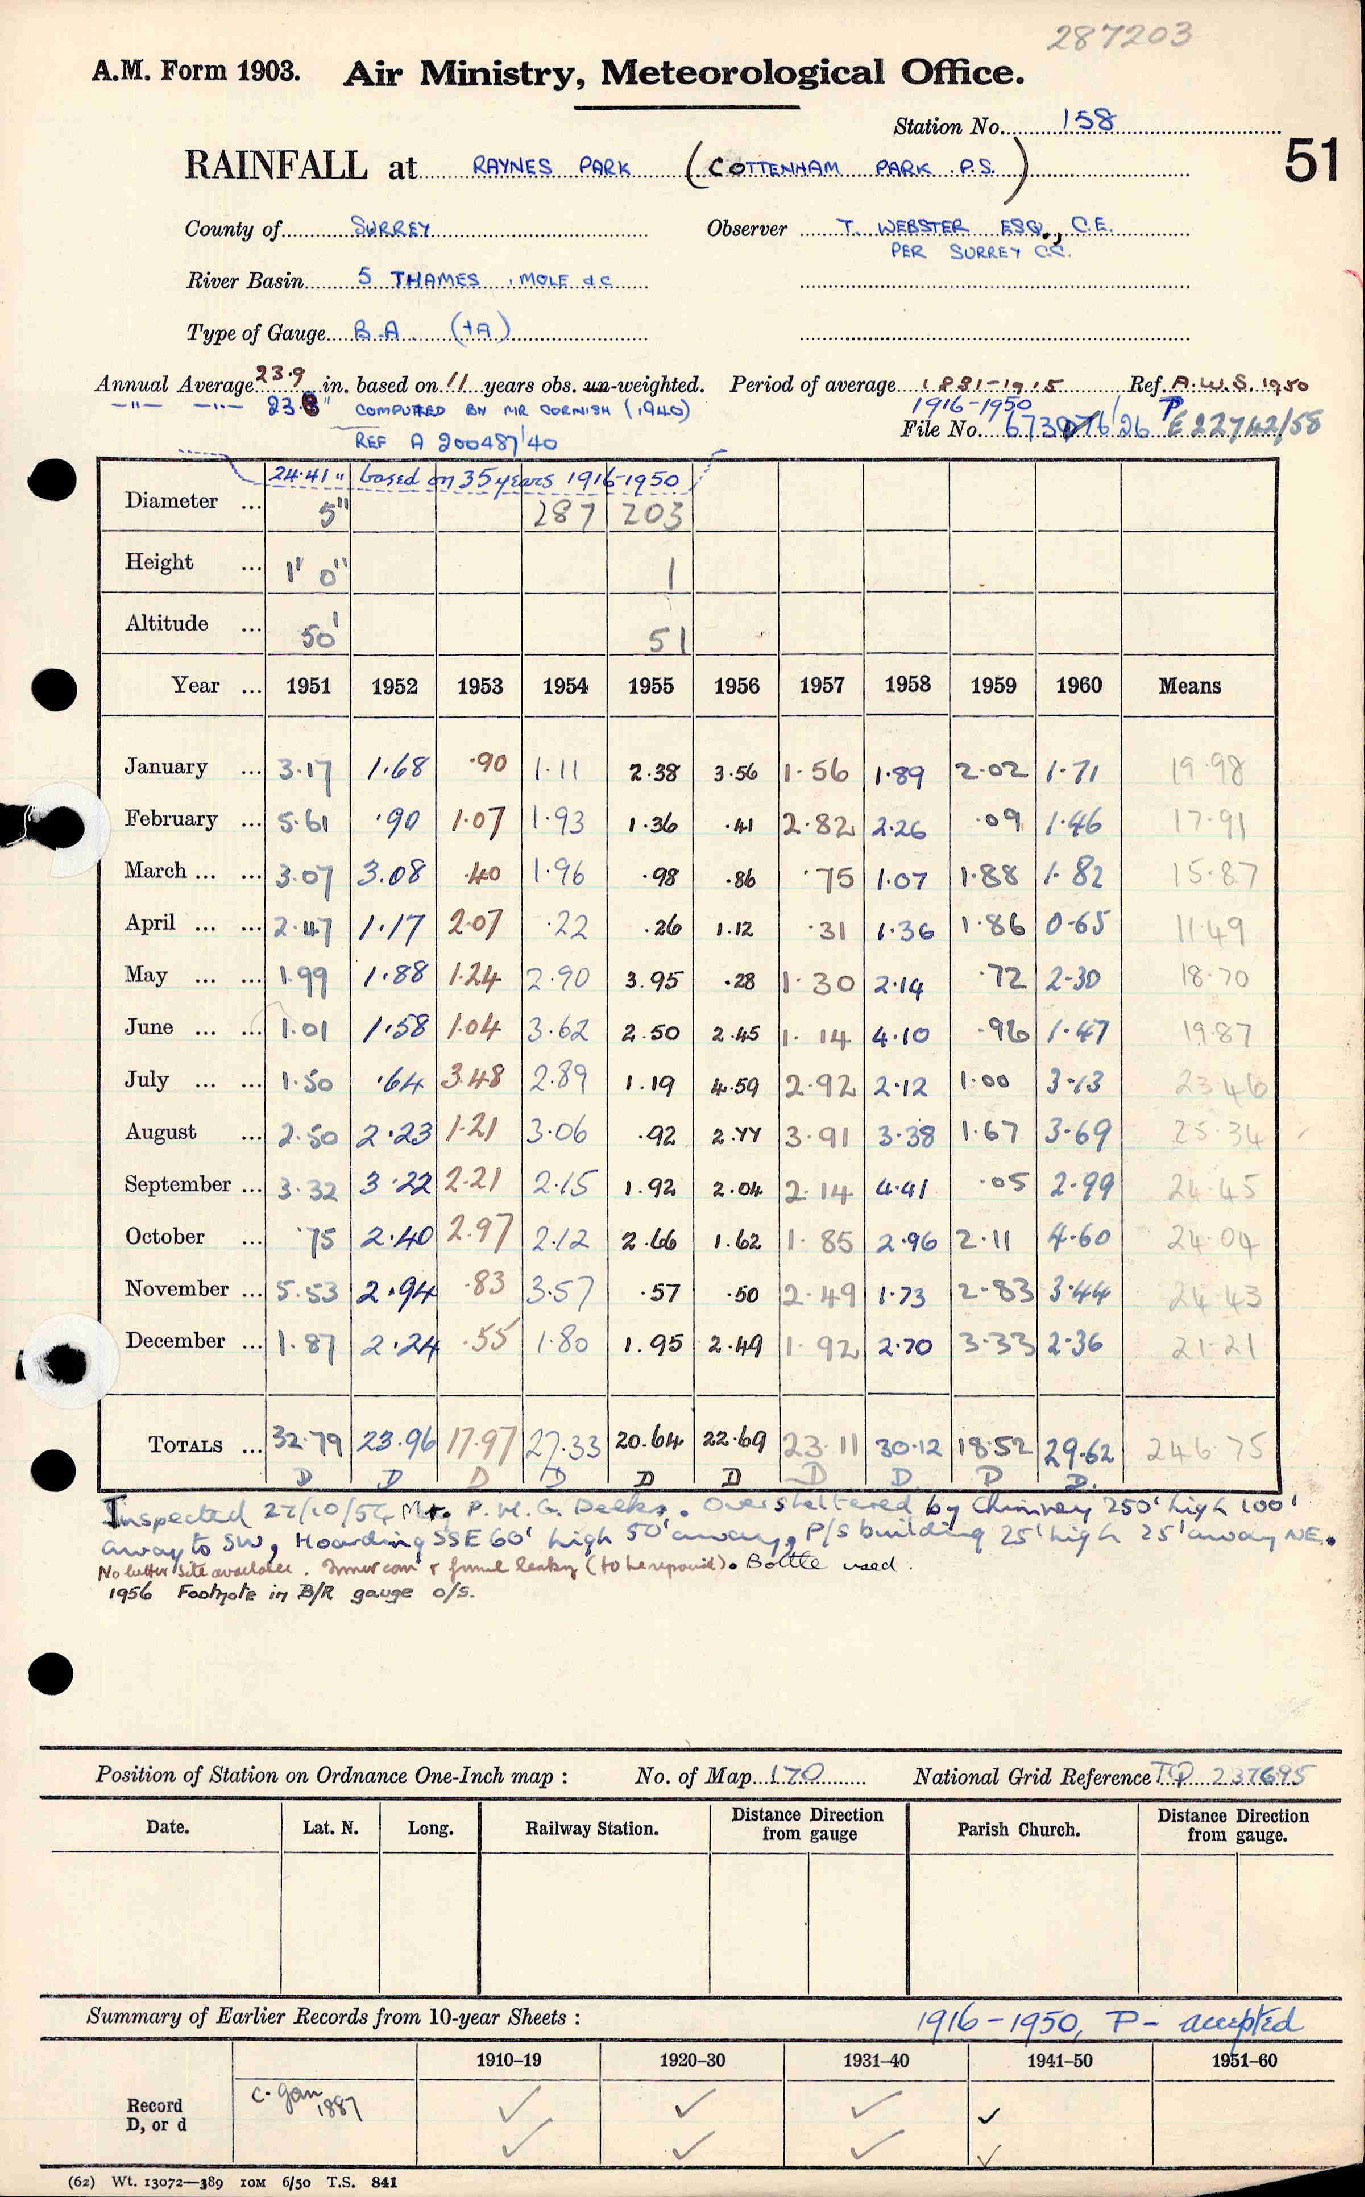 287203
A.M. Form 1903. Air Ministry, Meteorological Office.
Station No. 158
RAINFALL at RAYNES PARK (COTTENHAM PARK P.S.) 51
County of SURREY Observer T. WEBSTER ESQ., C.E.
PER SURREY C.C.
River Basin 5 THAMES, MOLE &C
Type of Gauge B.A. (+A)
Annual Average 23.9 in. based on 11 years obs. un-weighted. Period of average 1881-1915 Ref. A.W.S. 1950
-"- -"- 23.8" COMPUTED BY MR CORNISH (1940) 1916-1950
REF A 200487/40 File No. 673076/26 P E22742/58
24.41" based on 35 years 1916-1950
Diameter ... 5" 287 203
Height ... 1' 0" 1
Altitude ... 50' 51
Year ... 1951 1952 1953 1954 1955 1956 1957 1958 1959 1960 Means
January ... 3.17 1.68 .90 1.11 2.38 3.56 1.56 1.89 2.02 1.71 19.98
February ... 5.61 .90 1.07 1.93 1.36 .41 2.82 2.26 .09 1.46 17.91
March ... ... 3.07 3.08 .40 1.96 .98 .86 .75 1.07 1.88 1.82 15.87
April ... ... 2.47 1.17 2.07 .22 .26 1.12 .31 1.36 1.86 0.65 11.49
May ... ... 1.99 1.88 1.24 2.90 3.95 .28 1.30 2.14 .72 2.30 18.70
June ... ... 1.01 1.58 1.04 3.62 2.50 2.45 1.14 4.10 .96 1.47 19.87
July ... ... 1.50 .64 3.48 2.89 1.19 4.59 2.92 2.12 1.00 3.13 23.46
August ... 2.50 2.23 1.21 3.06 .92 2.77 3.91 3.38 1.67 3.69 25.34
September ... 3.32 3.22 2.21 2.15 1.92 2.04 2.14 4.41 .05 2.99 24.45
October ... .75 2.40 2.97 2.12 2.66 1.62 1.85 2.96 2.11 4.60 24.04
November ... 5.53 2.94 .83 3.57 .57 .50 2.49 1.73 2.83 3.44 24.43
December ... 1.87 2.24 .55 1.80 1.95 2.49 1.92 2.70 3.33 2.36 21.21
TOTALS ... 32.79 23.96 17.97 27.33 20.64 22.69 23.11 30.12 18.52 29.62 246.75
D D D D D D D D. D D.
Inspected 22/10/54 Mr. P.H.G. Deeks. Oversheltered by Chimney 250' high 100'
away to SW, Hoarding SSE 60' high 50' away, P/S building 25' high 25' away NE.
No better site available. Inner can & funnel leaky (to be repaired). Bottle used.
1956 Footnote in B/R gauge o/s.
Position of Station on Ordnance One-Inch map : No. of Map 170 National Grid Reference TQ 237695
Date. Lat. N. Long. Railway Station. Distance from gauge Direction Parish Church. Distance from gauge. Direction
Summary of Earlier Records from 10-year Sheets : 1916-1950, P - accepted
1910-19 1920-30 1931-40 1941-50 1951-60
Record D, or d c. Jan 1887 ✓ ✓ ✓ ✓
✓ ✓ ✓ ✓
(62) Wt. 13072—389 10M 6/50 T.S. 841